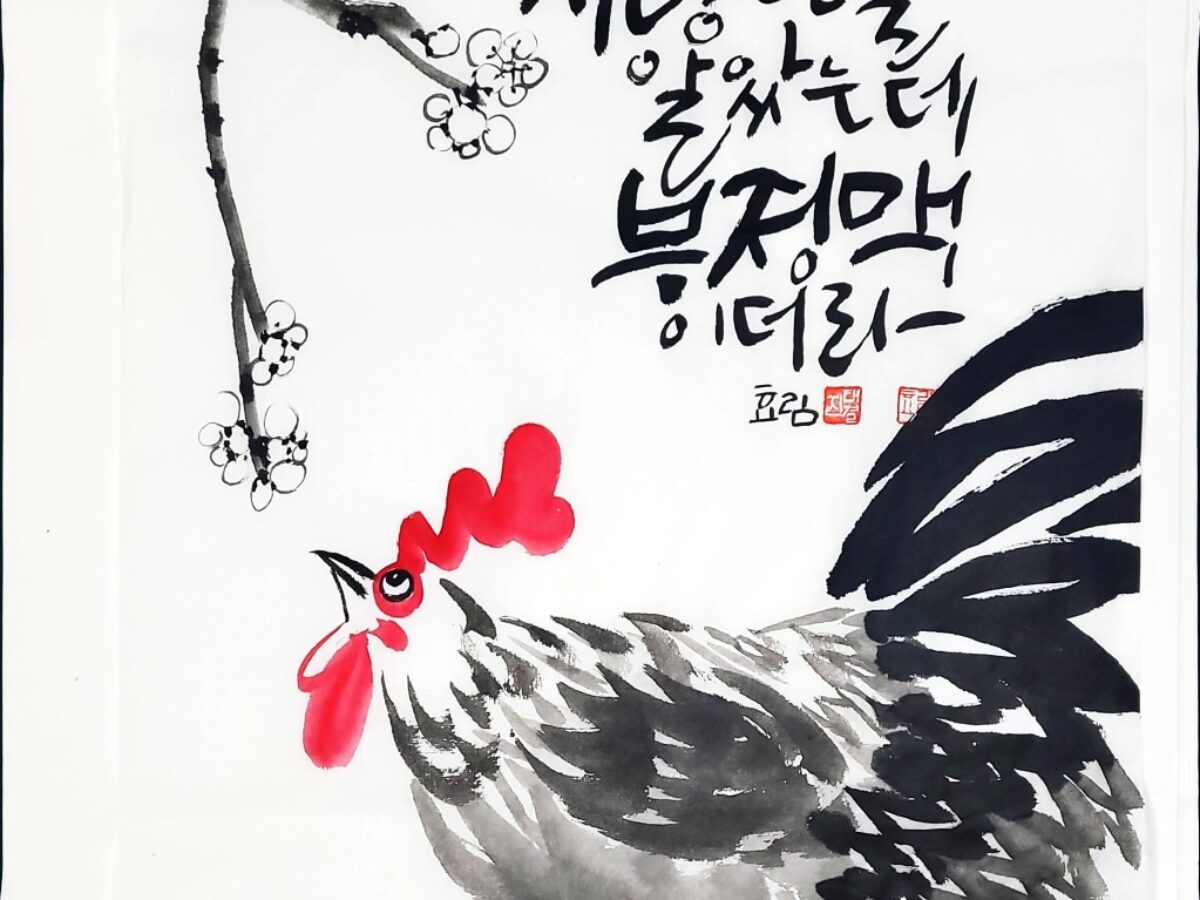 알았는데
부정맥
이더라
효림